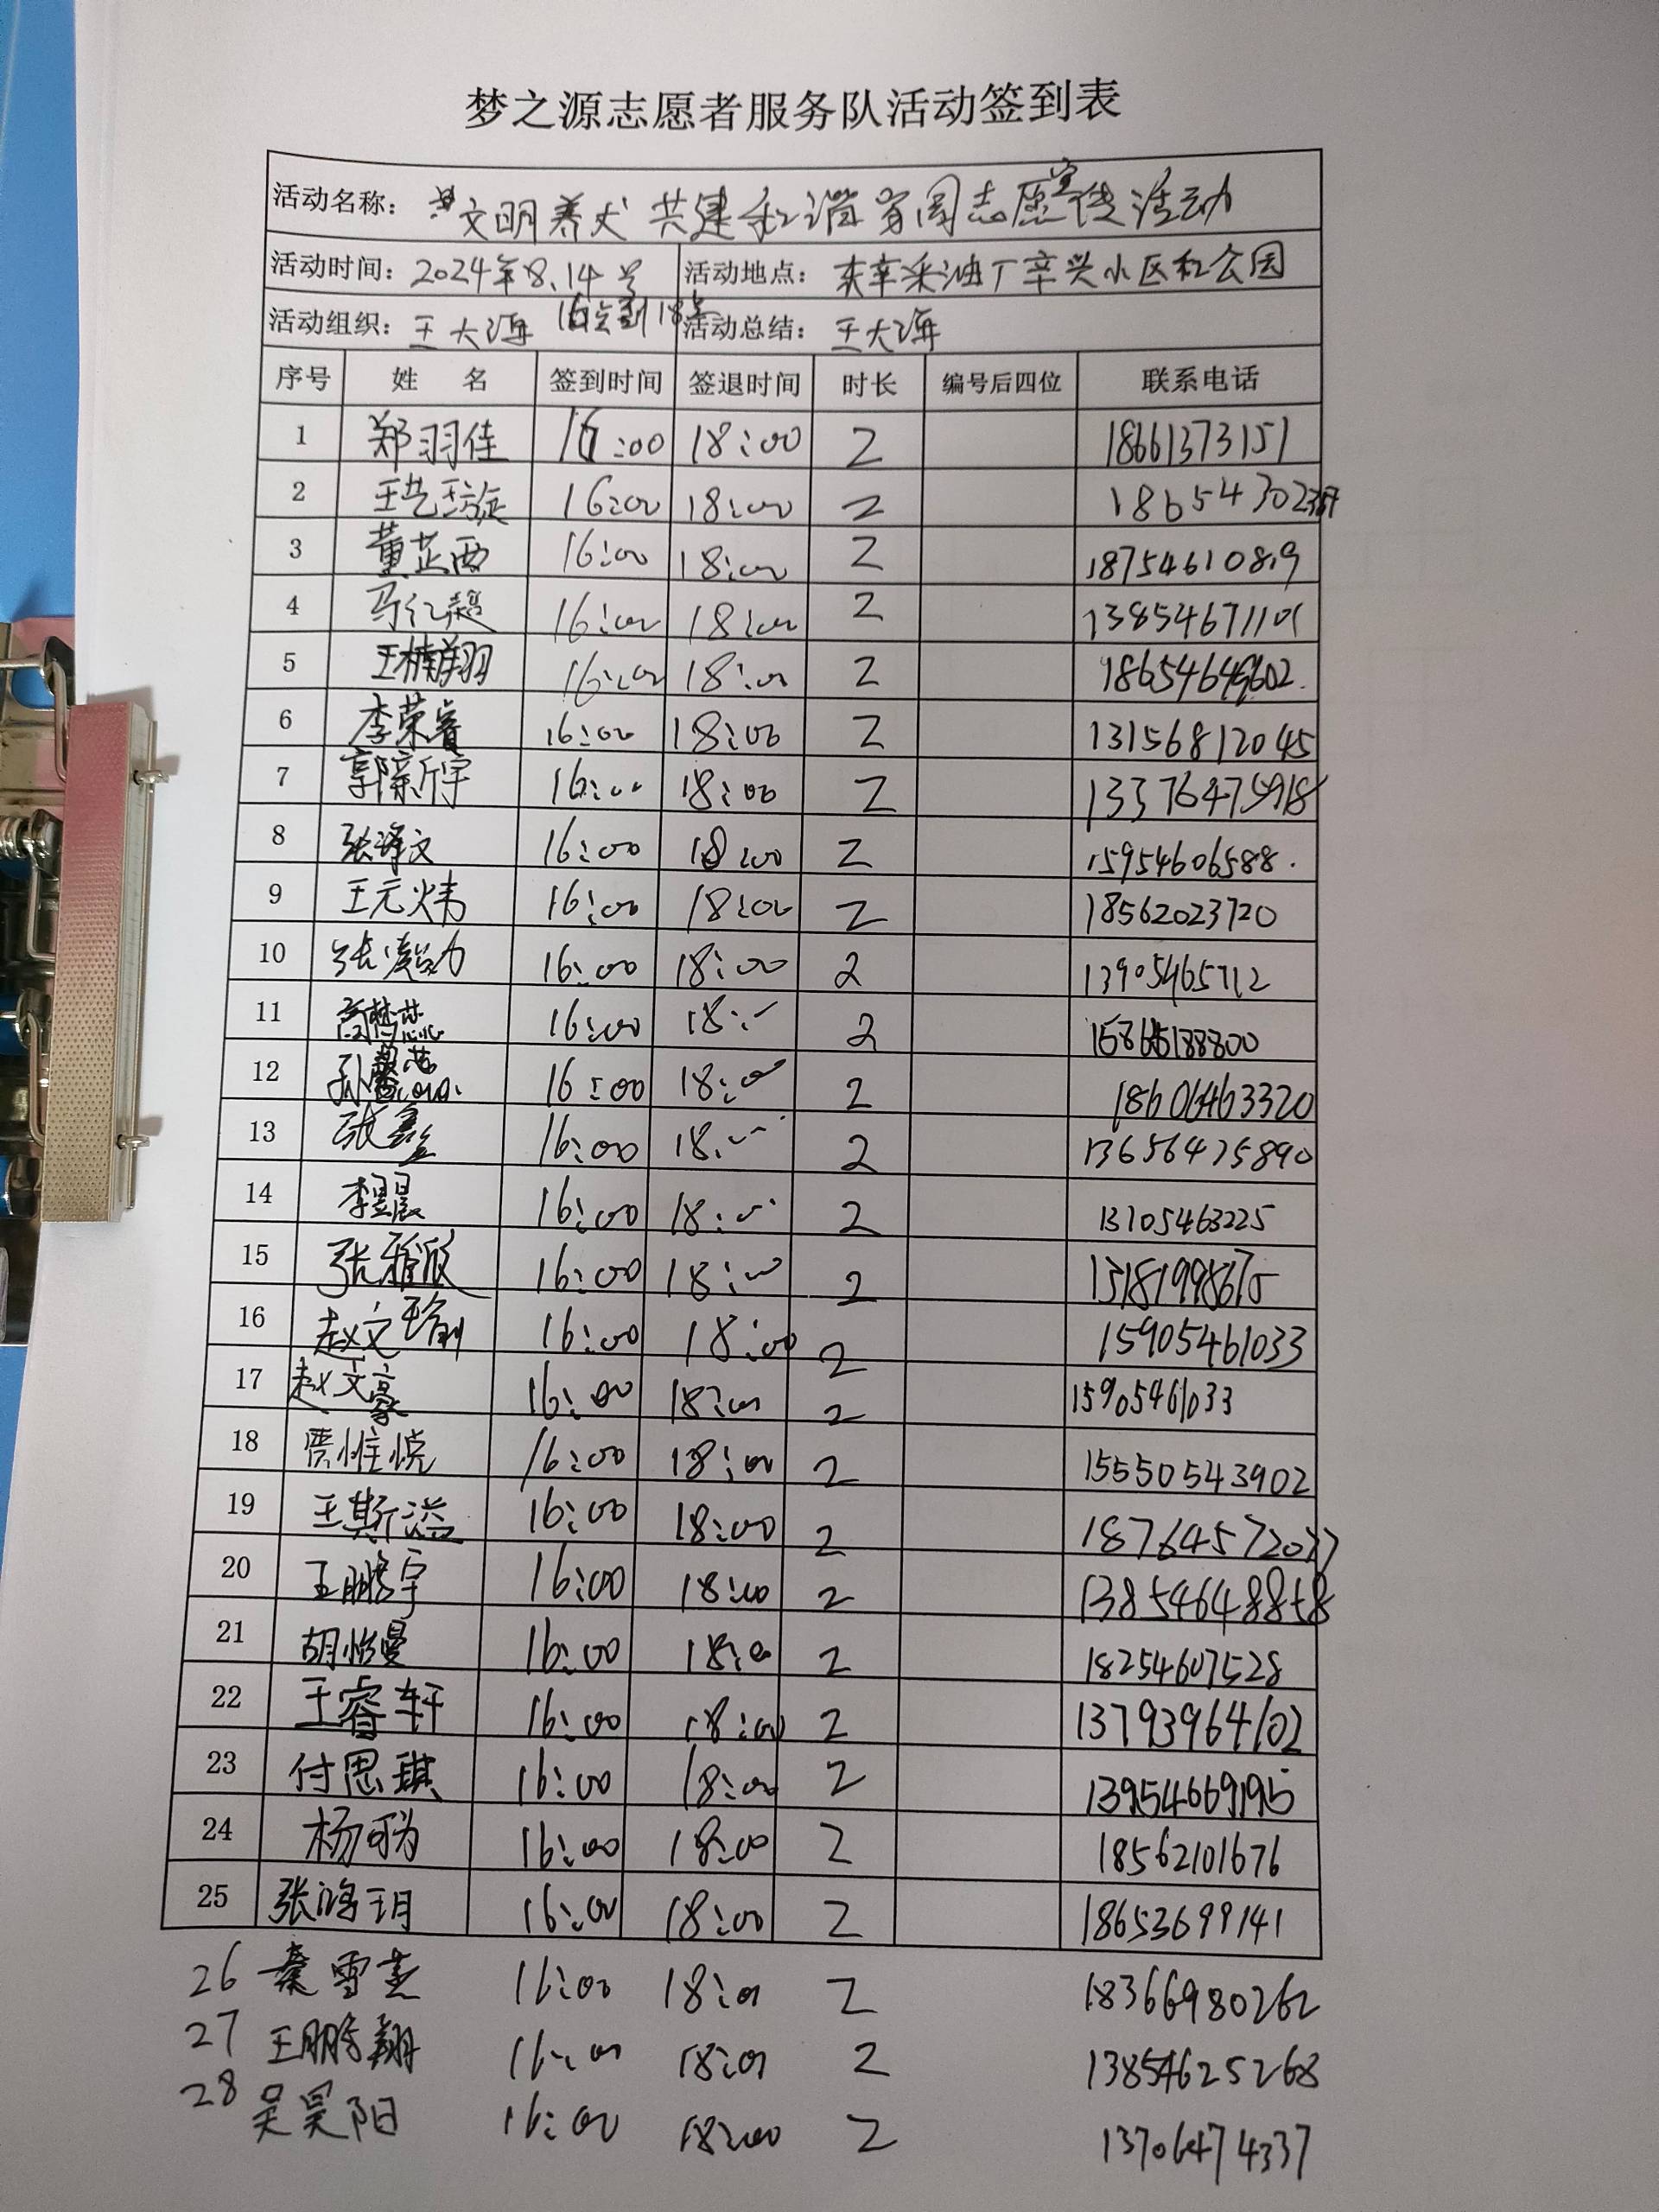 梦之源志愿者服务队活动签到表
活动名称： 文明养犬 共建和谐家园志愿宣传活动
活动时间：2024年8.14号 16点到18点 活动地点：东辛采油厂辛兴小区和公园
活动组织：王大海 活动总结：王大海
序号 姓 名 签到时间 签退时间 时长 编号后四位 联系电话
1 郑羽佳 16:00 18:00 2 18661373151
2 王艺璇 16:00 18:00 2
3 董芷西 16:00 18:00 2 18754610819
4 马红超 16:00 18:00 2 13854671101
5 王楠翔 16:00 18:00 2
6 李荣睿 16:00 18:00 2 13156812045
7 郭新宇 16:00 18:00 2 13376475918
8 张泽文 16:00 18:00 2 15954606588.
9 王元炜 16:00 18:00 2 18562023720
10 16:00 18:00 2 13905465712
11 16:00 18: 2
12 16:00 18:00 2 18606463320
13 张鑫 16:00 18: 2 13656475890
14 李昱晨 16:00 18: 2 13105463225
15 张雅淑 16:00 18:00 2 13181998675
16 赵文瑜 16:00 18:00 2 15905461033
17 赵文豪 16:00 18:00 2 15905461033
18 贾惟悦 16:00 18:00 2 15550543902
19 王斯溢 16:00 18:00 2
20 王鹏宇 16:00 18:00 2 13854648858
21 胡怡曼 16:00 18:00 2 18254607528
22 王睿轩 16:00 18:00 2 13793964102
23 付思琪 16:00 18:00 2 13954669195
24 杨 16:00 18:00 2 18562101676
25 张鸿玥 16:00 18:00 2 18653699141
26 秦雪芝 16:00 18:00 2 18366980262
27 王鹏翔 16:00 18:00 2 13854625268
28 吴昊阳 16:00 18:00 2 13706474337